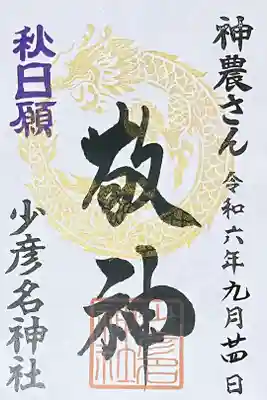 神農さん 令和六年九月廿四日
敬神
秋日願
少彦名神社